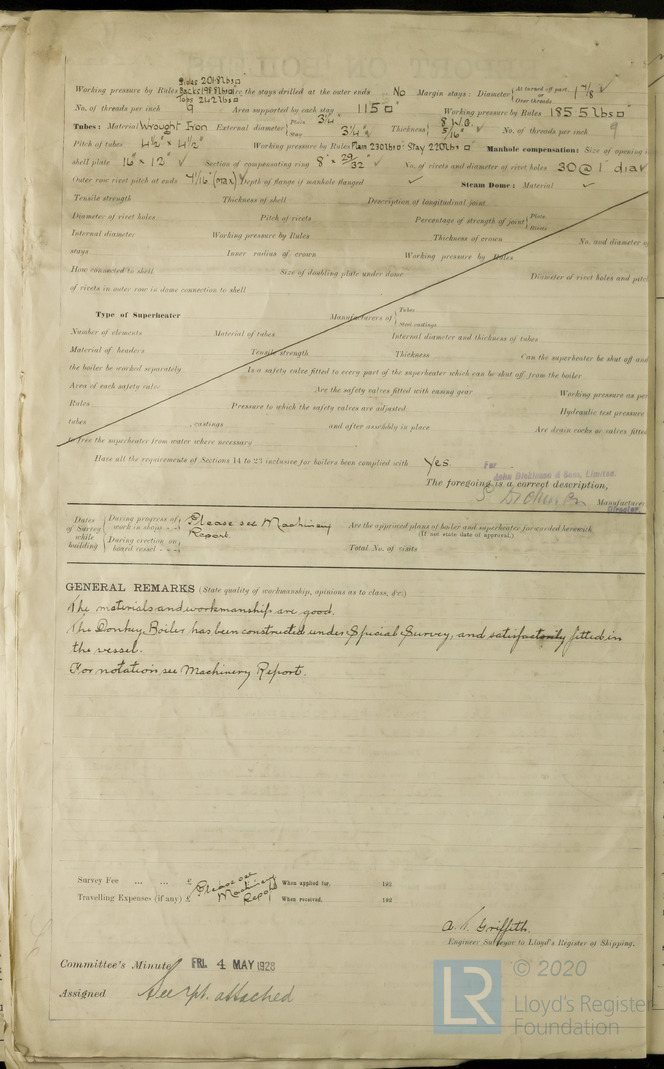 Sides 201.8 lbs □
Working pressure by Rules Backs 198.8 lbs □ Are the stays drilled at the outer ends No Margin stays: Diameter { At turned off part, 1 7/8" ✓
Tops 242 lbs □ or Over threads
No. of threads per inch 9 Area supported by each stay 115 □" Working pressure by Rules 185.5 lbs □"
Tubes: Material Wrought Iron External diameter { Plain 3¼" Stay 3¼" Thickness { 8 W.G. 5/16" ✓ No. of threads per inch 9
Pitch of tubes 4½" × 4½" Working pressure by Rules Plain 230 lbs □ Stay 220 lbs □" Manhole compensation: Size of opening
shell plate 16" × 12" ✓ Section of compensating ring 8" × 29/32" ✓ No. of rivets and diameter of rivet holes 30 @ 1" dia
Outer row rivet pitch at ends 4 1/16" (max) ✓ Depth of flange if manhole flanged ✓ Steam Dome: Material ✓
Tensile strength Thickness of shell Description of longitudinal joint
Diameter of rivet holes Pitch of rivets Percentage of strength of joint { Plate Rivets
Internal diameter Working pressure by Rules Thickness of crown No. and diameter of
stays Inner radius of crown Working pressure by Rules
How connected to shell Size of doubling plate under dome Diameter of rivet holes and pitch
of rivets in outer row in dome connection to shell
Type of Superheater Manufacturers of { Tubes Steel castings
Number of elements Material of tubes Internal diameter and thickness of tubes
Material of headers Tensile strength Thickness Can the superheater be shut off and
the boiler be worked separately Is a safety valve fitted to every part of the superheater which can be shut off from the boiler
Area of each safety valve Are the safety valves fitted with easing gear Working pressure as per
Rules Pressure to which the safety valves are adjusted Hydraulic test pressure
tubes , castings and after assembly in place Are drain cocks or valves fitted
to free the superheater from water where necessary
Have all the requirements of Sections 14 to 23 inclusive for boilers been complied with Yes.
For
John Dickinson & Sons, Limited.
The foregoing is a correct description,
Manufacturer
Director.
Dates of Survey while building { During progress of work in shops - - } Please see Machinery Report. Are the approved plans of boiler and superheater forwarded herewith
(If not state date of approval.)
{ During erection on board vessel - - - } Total No. of visits
GENERAL REMARKS (State quality of workmanship, opinions as to class, &c.)
The materials and workmanship are good.
The Donkey Boiler has been constructed under Special Survey, and satisfactorily fitted in
the vessel.
For notation see Machinery Report.
Survey Fee ... ... £ Please see Machinery Report When applied for, 192
Travelling Expenses (if any) £ When received, 192
Griffith.
Engineer Surveyor to Lloyd's Register of Shipping.
Committee's Minute FRI. 4 MAY 1928
Assigned See rpt. attached
LR © 2020
Lloyd's Register
Foundation